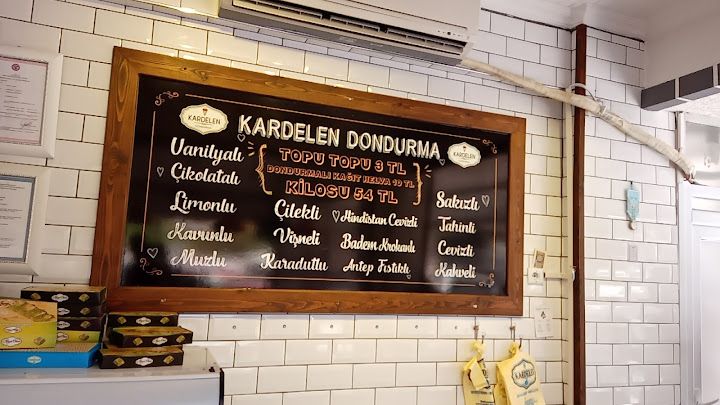 KARDELEN
KARDELEN DONDURMA
TOPU TOPU 3 TL
DONDURMALI KAĞIT HELVA 10 TL
KİLOSU 54 TL
Vanilyalı
Çikolatalı
Limonlu
Kavunlu
Muzlu
Çilekli
Vişneli
Karadutlu
Hindistan Cevizli
Badem Krokanlı
Antep Fıstıklı
Sakızlı
Tahinli
Cevizli
Kahveli
KARDELEN
KARDELEN